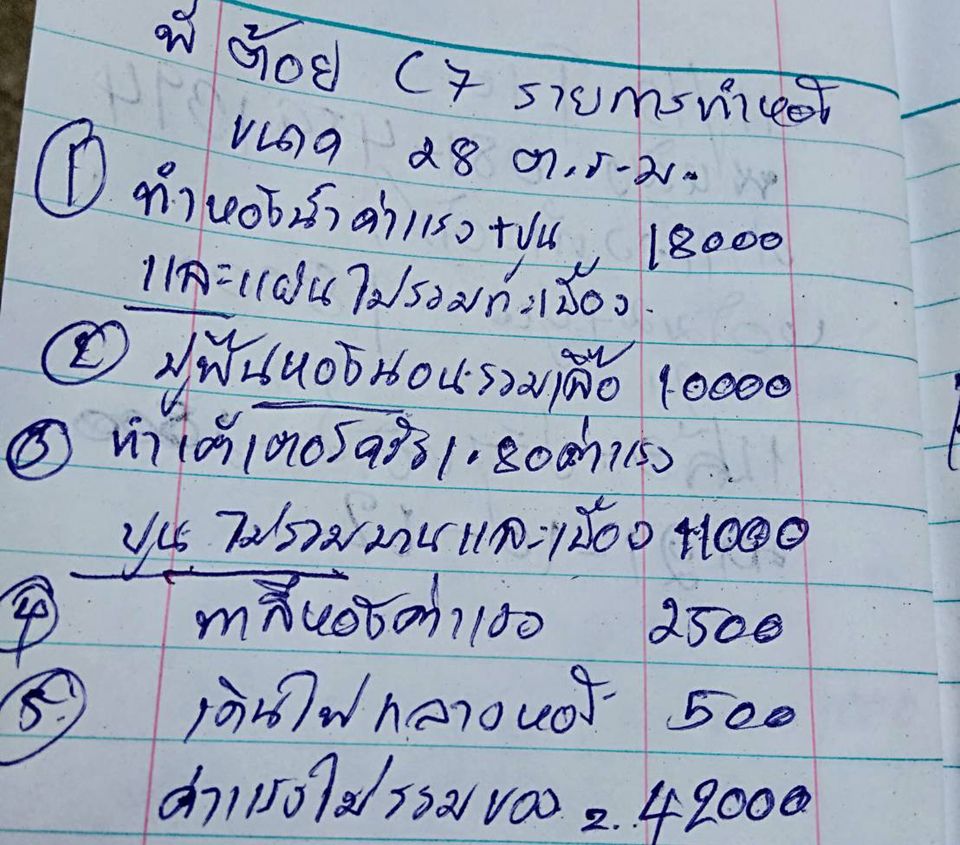 พี่ ต้อย C7 รายการทำห้อง
ขนาด 28 ต.ร.ม.
① ทำห้องน้ำค่าแรง+ปูน 18000
และแผ่นไม่รวมกระเบื้อง
② ปูพื้นห้องนอน รวม 10000
③ ทำเค้าเตอร์ครัว 1.80 ค่าแรง
ปูน ไม่รวมบานและกระเบื้อง 11000
④ ทาสีห้องค่าแรง 2500
⑤ เดินไฟกลางห้อง 500
ค่าแรงไม่รวมของ = 42000